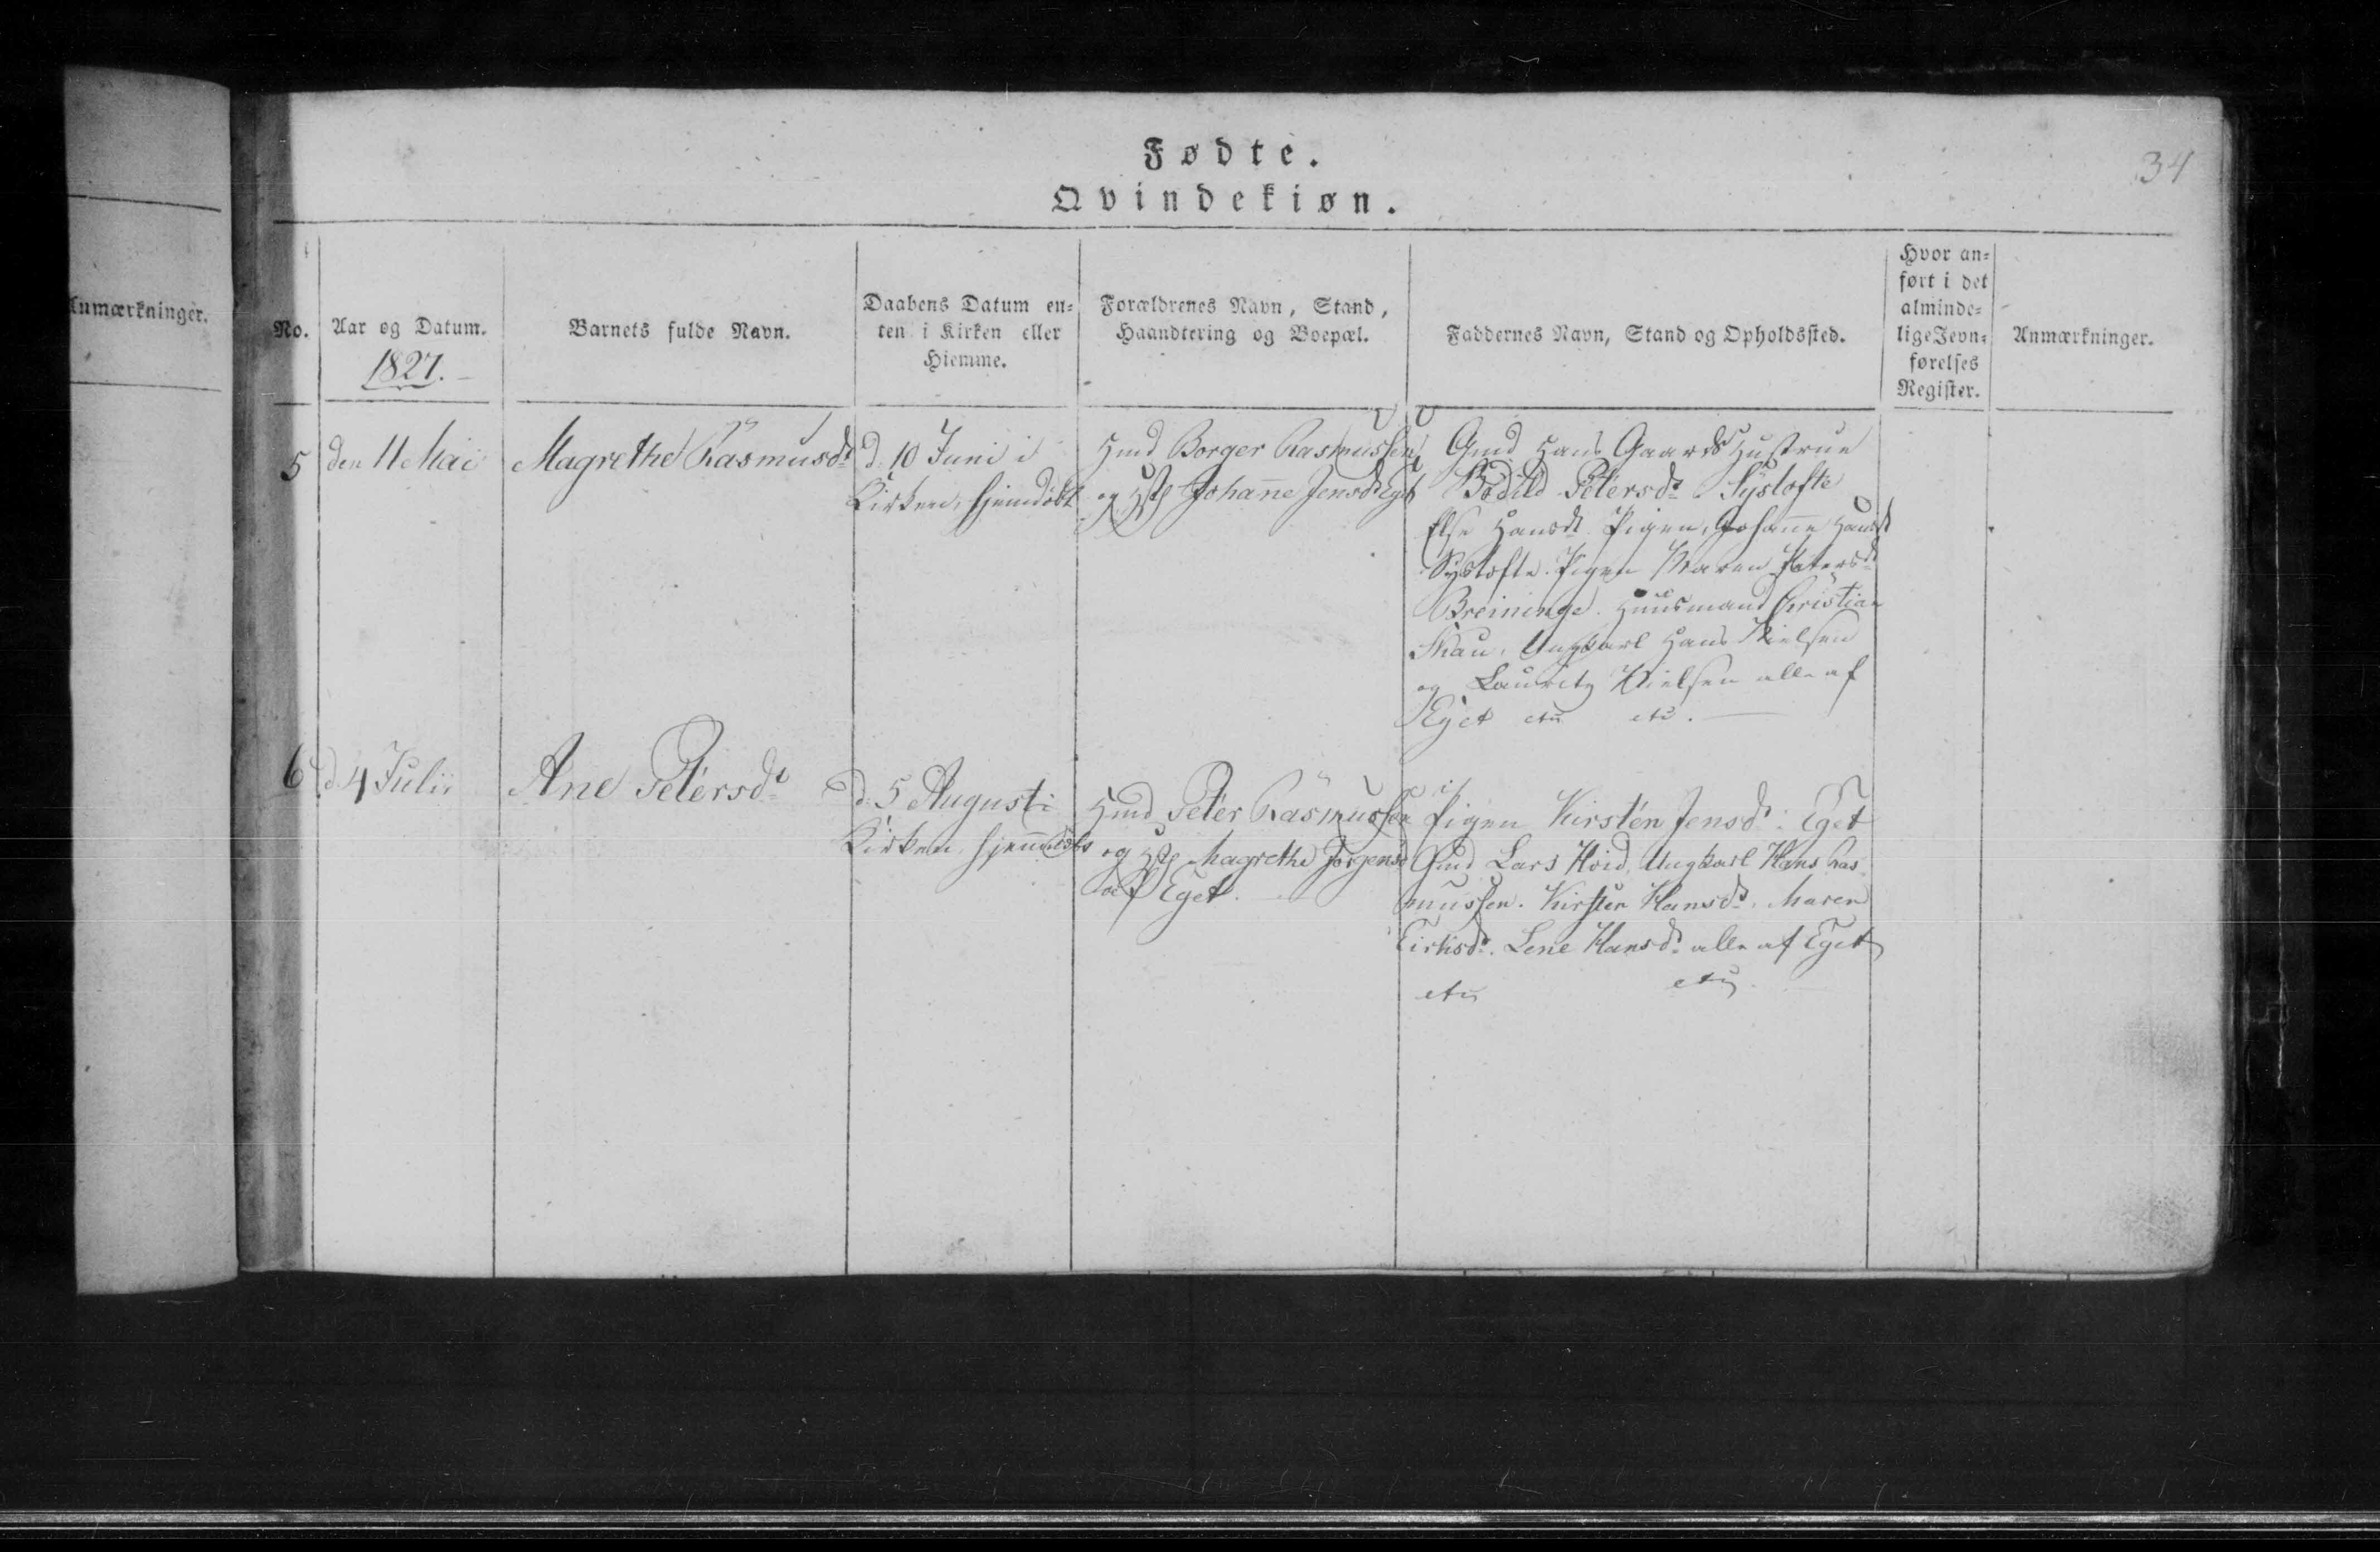 Anmærkninger.
Fødte.
Qvindekiøn.
34
No.
Aar og Datum.
1827.
Barnets fulde Navn.
Daabens Datum en-
ten i Kirken eller
Hiemme.
Forældrenes Navn, Stand,
Haandtering og Boepæl.
Faddernes Navn, Stand og Opholdssted.
Hvor an-
ført i det
alminde-
lige Jevn-
førelses
Register.
Anmærkninger.
5
den 11 Mai
Magrethe Rasmusdt
d: 10 Juni i
Kirken, hjemdøbt
Hmd Borger Rasmussen
og Hst Johanne Jensdt Eget
Gmd Hans Gaards Hustrue
Bodild Petersdt Systofte
Else Hansdt Pigen, Johanne Hansdt
Systofte. Pigen Maren Petersdt
Breininge. Huusmand Christian
Skau, Ungkarl Hans Nielsen
og Lauritz Nielsen alle af
Eget
6
d. 4 Julii
Ane Petersdt
d: 5 August i
Kirken, hjemdøbt
Hmd Peter Rasmussen
og Hst Magrethe Jørgensd
af Eget.
Pigen Kirsten Jensdt: Eget
Gmd Lars Hoid, Ungkarl Hans Ras-
mussen. Kirsten Hansdt. Maren
Eirksdt. Lene Hansdt alle af Eget